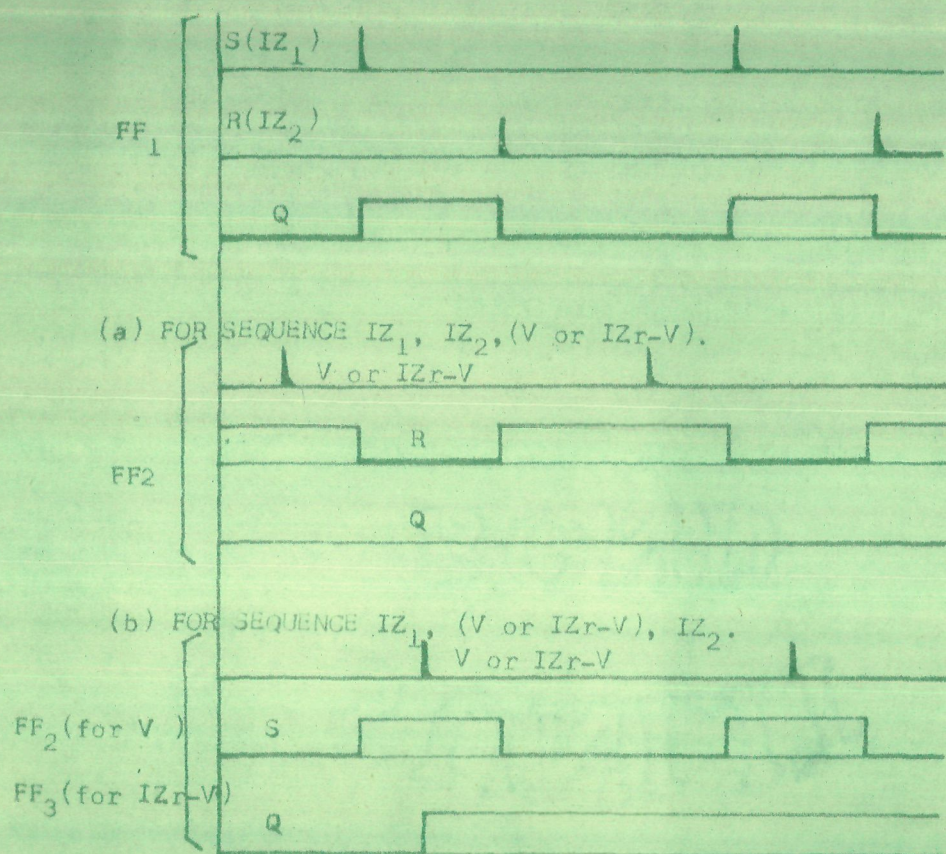 S(IZ₁)
R(IZ₂)
FF₁
Q
(a) FOR SEQUENCE IZ₁, IZ₂,(V or IZr-V).
V or IZr-V
R
FF2
Q
(b) FOR SEQUENCE IZ₁, (V or IZr-V), IZ₂.
V or IZr-V
FF₂(for V )
S
FF₃(for IZr-V)
Q